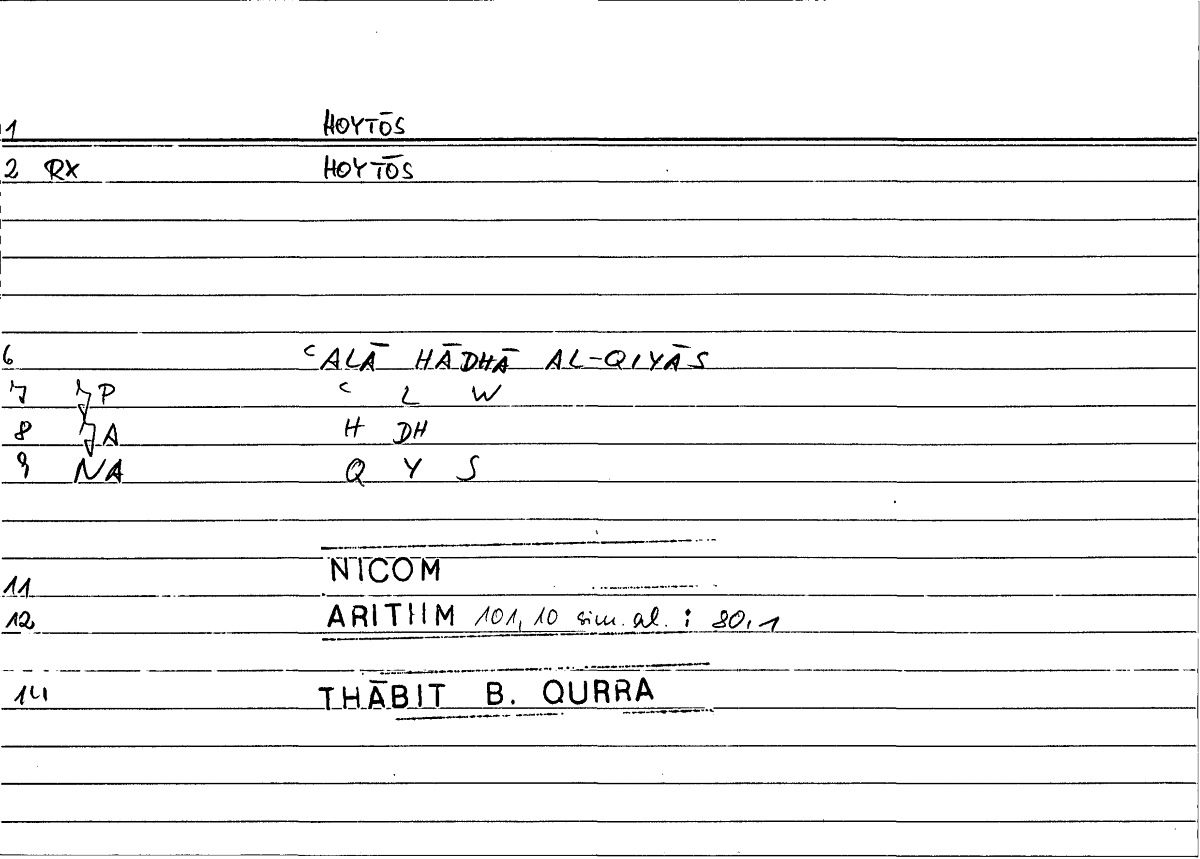 1 HOYTŌS
2 RX HOYTŌS
6 ᶜALĀ HĀDHĀ AL-QIYĀS
7 P ᶜ L W
8 A H DH
9 NA Q Y S
11 NICOM
12 ARITHM 101,10 sim. al. : 80,1
14 THĀBIT B. QURRA